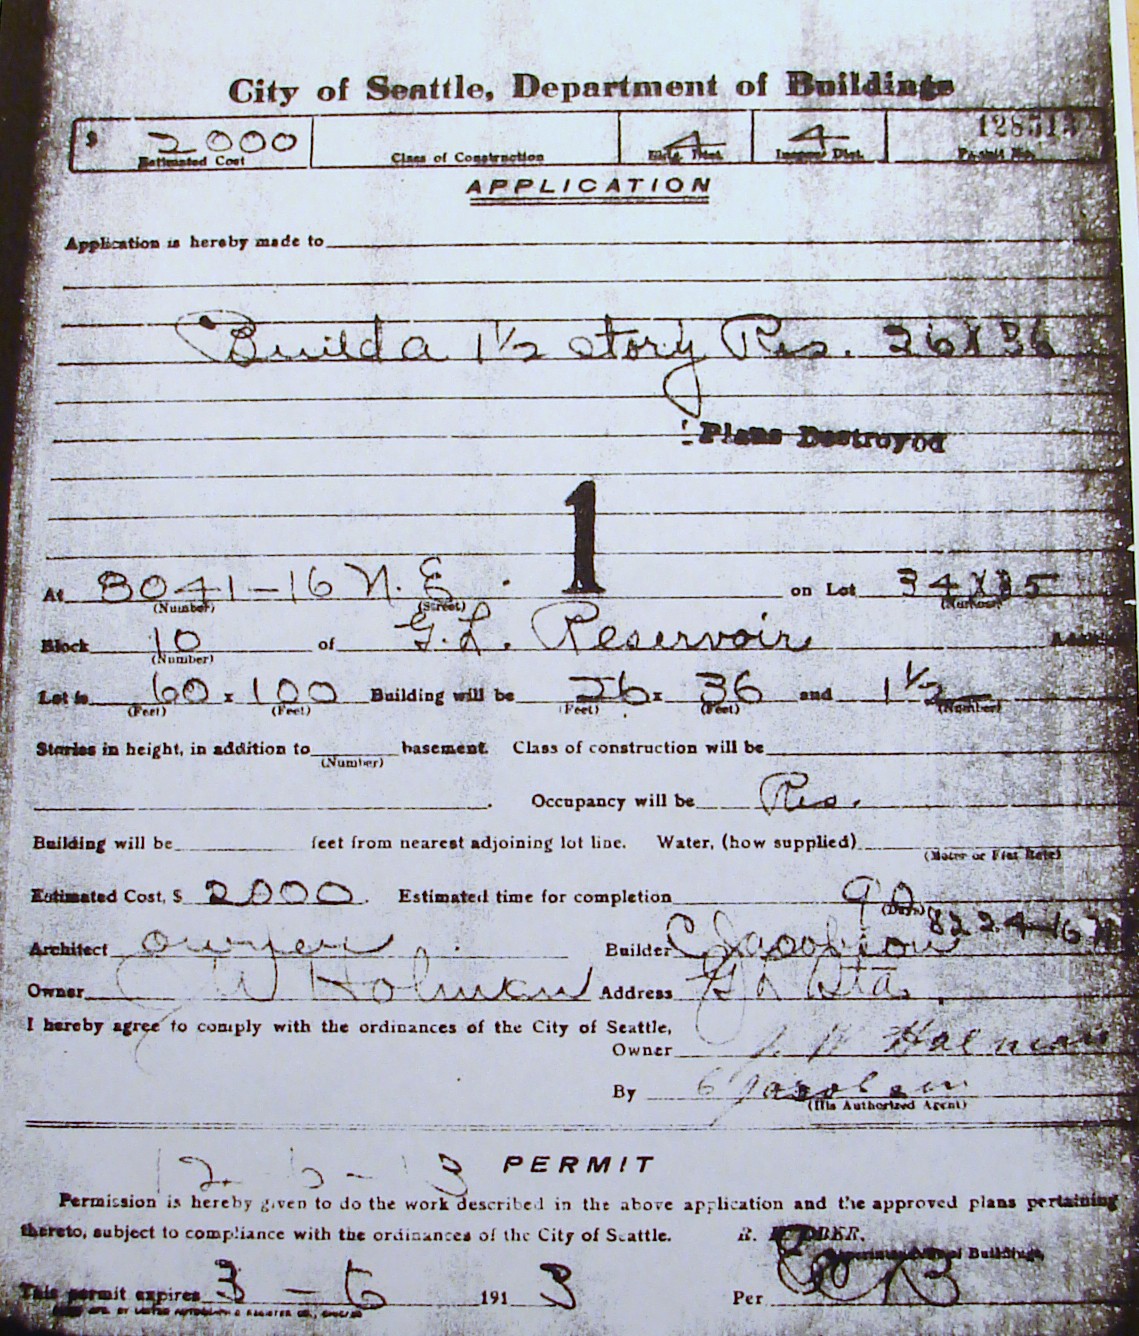 City of Seattle, Department of Buildings
$ 2000 4 4
Estimated Cost Class of Construction Bldg. Dist. Dist. Permit No.
APPLICATION
Application is hereby made to
Build a 1½ story Res. 26 X 36
Plans Destroyed
1
At 8041-16 N.E. on Lot 34 X 35
(Number) (Street) (Number)
Block 10 of G.L. Reservoir
(Number)
Lot is 60 x 100 Building will be 26 x 36 and 1½
(Feet) (Feet) (Feet) (Feet) (Number)
Stories in height, in addition to basement. Class of construction will be
(Number)
. Occupancy will be Res.
Building will be feet from nearest adjoining lot line. Water, (how supplied)
(Meter or Flat Rate)
Estimated Cost, $ 2000. Estimated time for completion 90
(Days)
8224-16 N
Architect owner Builder C Jacobson
Owner J W Holman Address G L Sta.
I hereby agree to comply with the ordinances of the City of Seattle,
Owner J. W Holman
By C Jacobson
(His Authorized Agent)
PERMIT
Permission is hereby given to do the work described in the above application and the approved plans pertaining
thereto, subject to compliance with the ordinances of the City of Seattle.
R. H. OBER,
Superintendent of Buildings.
This permit expires 3 - 6 191 3 Per